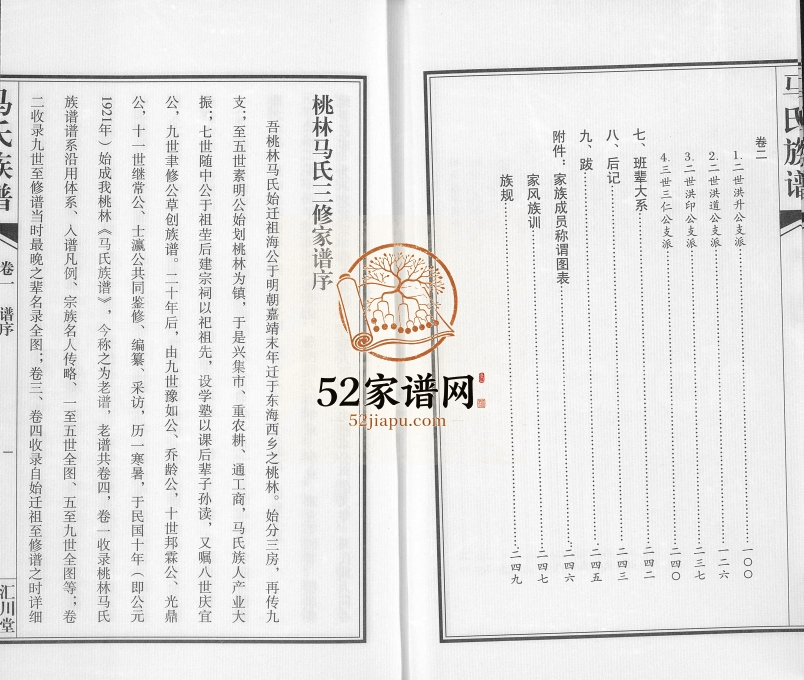 马氏族谱
卷二
1.二世洪升公支派 一〇〇
2.二世洪道公支派 一二六
3.二世洪印公支派 二三七
4.三世三仁公支派 二四〇
七、班辈大系 二四二
八、后记 二四三
九、跋 二四五
附件：家族成员称谓图表 二四六
家风族训 二四七
族规 二四九
桃林马氏三修家谱序
吾桃林马氏始迁祖海公于明朝嘉靖末年迁于东海西乡之桃林。始分三房，再传九
支；至五世素明公始划桃林为镇，于是兴集市、重农耕、通工商，马氏族人产业大
振；七世随中公于祖茔后建宗祠以祀祖先，设学塾以课后辈子孙读，又嘱八世庆宜
公，九世聿修公草创族谱。二十年后，由九世豫如公、乔龄公，十世邦霖公、光鼎
公，十一世继常公、士瀛公共同鉴修、编纂、采访，历一寒暑，于民国十年（即公元
1921年）始成我桃林《马氏族谱》，今称之为老谱，老谱共卷四，卷一收录桃林马氏
族谱谱系沿用体系、入谱凡例、宗族名人传略、一至五世全图、五至九世全图等；卷
二收录九世至修谱当时最晚之辈名录全图；卷三、卷四收录自始迁祖至修谱之时详细
马氏族谱
卷一 谱序
一
汇川堂
52家谱网
52jiapu.com